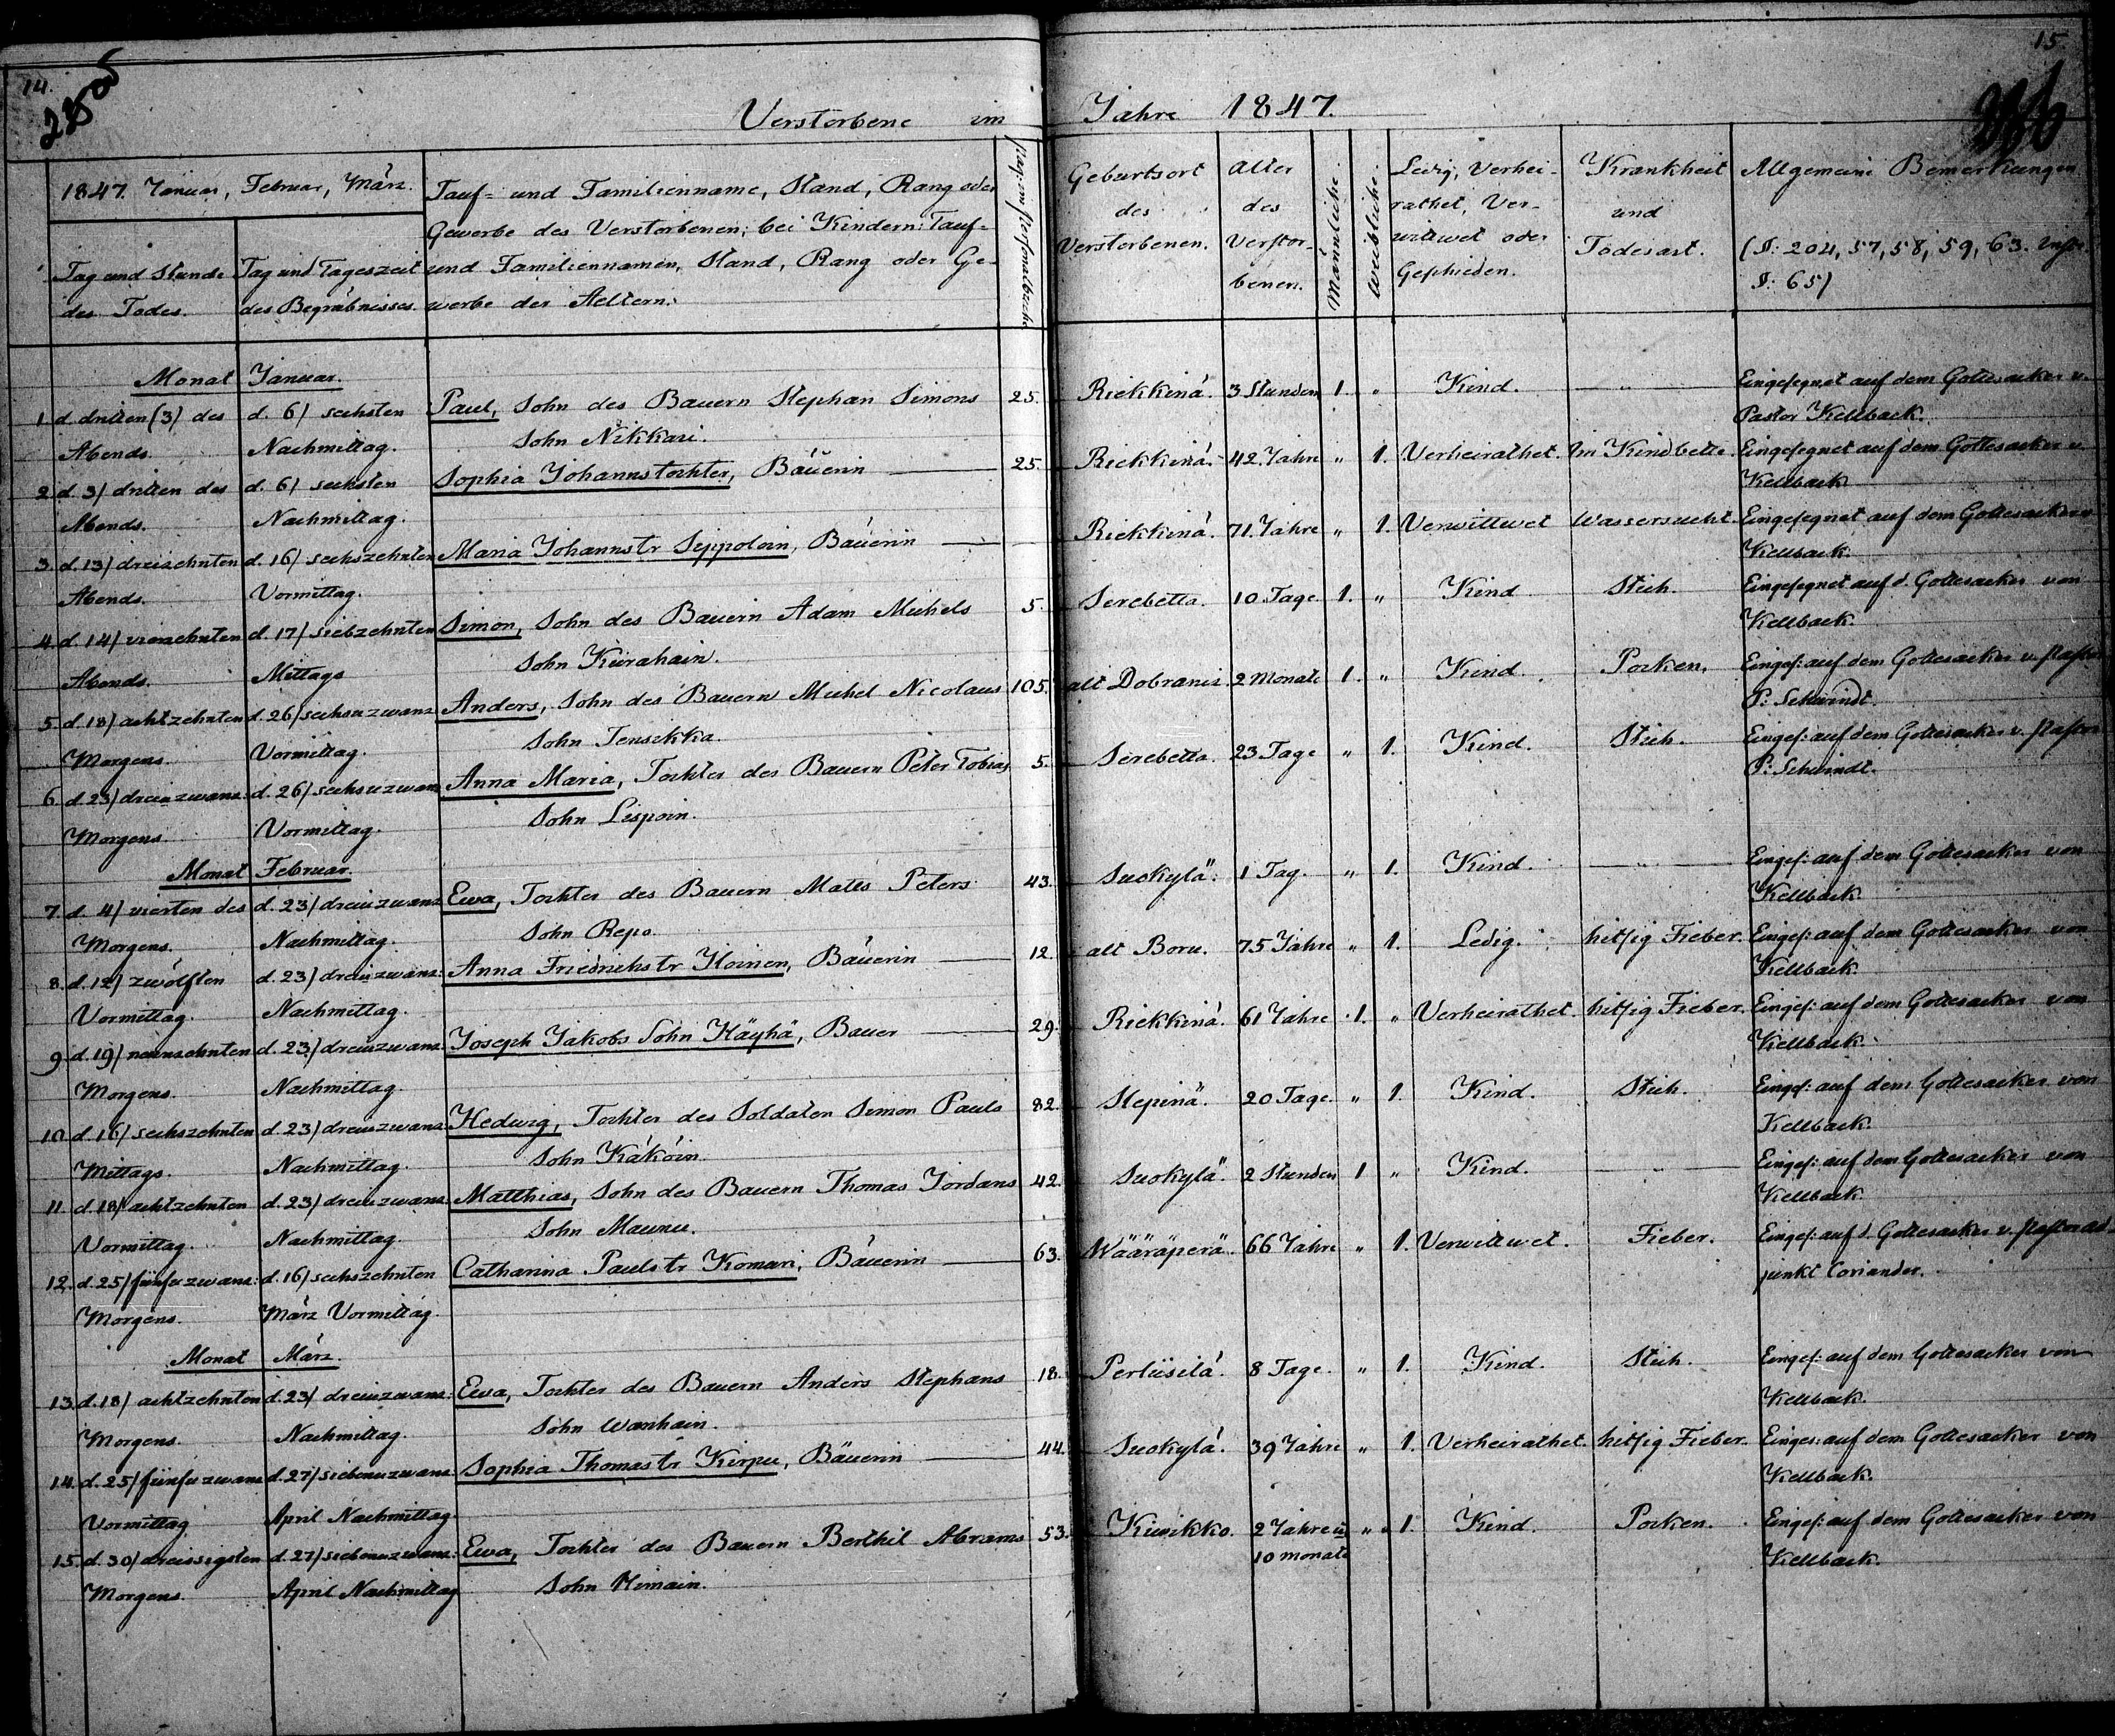 14.
15.
Verstorbene im Jahre 1847.
1847. Januar, Februar, März.
Tag und Stunde des Todes.
Tag und Tageszeit des Begräbnisses.
Tauf- und Familienname, Stand, Rang oder
Gewerbe des Verstorbenen; bei Kindern: Tauf-
und Familiennamen, Stand, Rang oder Ge-
werbe der Aeltern.
Pag. im Personalbuche
Geburtsort
des
Verstorbenen.
Alter
des
Verstor-
benen.
Männliche
Weibliche
Ledig, Verhei-
rathet, Ver-
wittwet oder
Geschieden.
Krankheit
und
Todesart.
Allgemeine Bemerkungen
(§: 204, 57, 58, 59, 63. Instr.
§: 65)
Monat Januar.
1. d. dritten (3) des d. 6/ sechsten Paul, Sohn des Bauern Stephan Simons 25. Riekkinä. 3 Stunden 1. „ Kind. — „ — Eingesegnet auf dem Gottesacker v.
Abends. Nachmittag. Sohn Nikkari. Pastor Kellback.
2. d. 3/ dritten des d. 6/ sechsten Sophia Johannstochter, Bäuerin — 25. Riekkinä. 42. Jahre „ 1. Verheirathet. Im Kindbette. Eingesegnet auf dem Gottesacker v.
Abends. Nachmittag. Kellback.
3. d. 13/ dreizehnten d. 16/ sechszehnten Maria Johannstr Seppoloin, Bäuerin — Riekkinä. 71. Jahre „ 1. Verwittwet Wassersucht. Eingesegnet auf dem Gottesacker v.
Abends. Vormittag. Kellback.
4. d. 14/ vierzehnten d. 17/ siebzehnten Simon, Sohn des Bauern Adam Michels 5. Serebetta. 10. Tage 1. „ Kind Stich. Eingesegnet auf d. Gottesacker von
Abends. Mittags Sohn Kürahain. Kellback.
5. d. 18/ achtzehnten d. 26/ sechsuzwanz Anders, Sohn des Bauern Michel Nicolaus 105. alt Dobraniz. 2 Monate 1. „ Kind. Pocken. Einges: auf dem Gottesacker v. Pastor
Morgens. Vormittag. Sohn Jensikka. P: Schwindt.
6. d. 23/ dreiuzwanz: d. 26/ sechsuzwanz Anna Maria, Tochter des Bauern Peter Tobias 5. Serebetta. 23 Tage „ 1. Kind. Stich. Einges: auf dem Gottesacker v. Pastor
Morgens. Vormittag. Sohn Lispoin. P: Schwindt.
Monat Februar.
7. d. 4/ vierten des d. 23/ dreiuzwanz Ewa, Tochter des Bauern Matts Peters 43. Suokylä. 1 Tag. „ 1. Kind. — „ — Einges: auf dem Gottesacker von
Morgens. Nachmittag. Sohn Repo. Kellback.
8. d. 12/ zwölften d. 23/ dreiuzwanz: Anna Friedrichstr Hoinen, Bäuerin — 12. alt Boru. 75 Jahre „ 1. Ledig. hitzig Fieber. Einges: auf dem Gottesacker von
Vormittag. Nachmittag. Kellback.
9. d. 19/ neunzehnten d. 23/ dreiuzwanz Joseph Jakobs Sohn Häyhä, Bauer — 29. Riekkinä. 61 Jahre 1. „ Verheirathet. hitzig Fieber. Einges: auf dem Gottesacker von
Morgens. Nachmittag Kellback.
10. d. 16/ sechszehnten d. 23/ dreiuzwanz Hedwig, Tochter des Soldaten Simon Pauls 82. Stepinä. 20 Tage. „ 1. Kind. Stich. Einges: auf dem Gottesacker von
Mittags. Nachmittag. Sohn Käköin. Kellback.
11. d. 18/ achtzehnten d. 23/ dreiuzwanz Matthias, Sohn des Bauern Thomas Jordans 42. Suokylä. 2 Stunden 1 „ Kind. — „ — Einges: auf dem Gottesacker von
Vormittag. Nachmittag Sohn Maunu. Kellback.
12. d. 25/ fünfuzwanz: d. 16/ sechszehnten Catharina Paulstr Komari, Bäuerin — 63. Wääräperä. 66 Jahre „ 1. Verwittwet. Fieber. Einges: auf d. Gottesacker v. Pastor ad
Morgens. März Vormittag. junkt Coriander.
Monat März.
13. d. 18/ achtzehnten d. 23/ dreiuzwanz: Ewa, Tochter des Bauern Anders Stephans 18. Pertüsilä. 8 Tage. „ 1. Kind. Stich. Einges: auf dem Gottesacker von
Morgens. Nachmittag. Sohn Wanhain. Kellback.
14. d. 25/ fünfuzwanz d. 27/ siebenuzwanz: Sophia Thomastr Kirpu, Bäuerin — 44. Suokylä. 39 Jahre „ 1. Verheirathet. hitzig Fieber. Einges: auf dem Gottesacker von
Vormittag April Nachmittag Kellback.
15. d. 30/ dreissigsten d. 27/ siebenuzwanz: Ewa, Tochter des Bauern Berthil Abrams 53. Kiwikko. 2 Jahre u „ 1. Kind. Pocken. Einges: auf dem Gottesacker von
Morgens. April Nachmittag Sohn Himain. 10 monate Kellback.